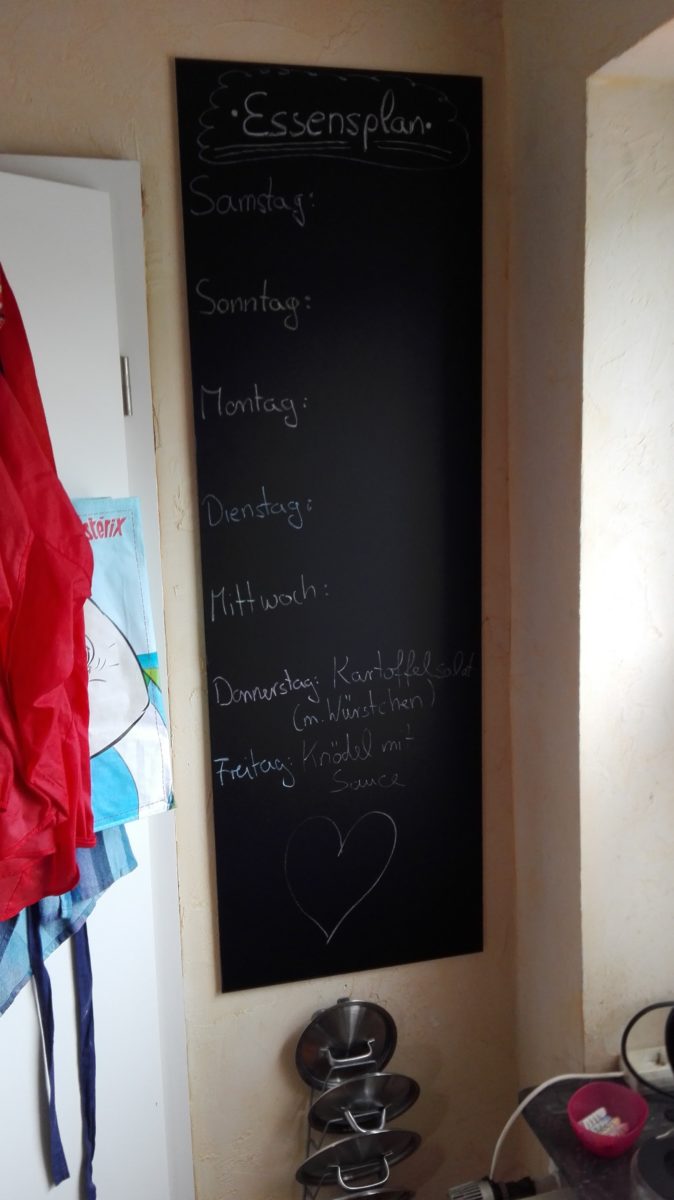 •Essensplan•
Samstag:
Sonntag:
Montag:
Dienstag:
Mittwoch:
Donnerstag: Kartoffelsalat
(m. Würstchen)
Freitag: Knödel mit
Sauce
stérix